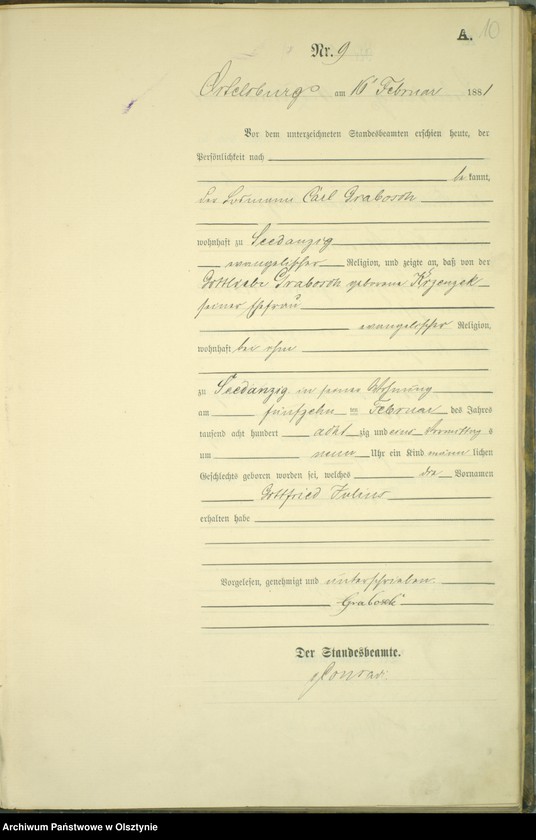 A. 10
Nr. 9
Ortelsburg am 16 Februar 1881
Vor dem unterzeichneten Standesbeamten erschien heute, der
Persönlichkeit nach
be kannt,
der Losmann Carl Grabosch
wohnhaft zu Seedanzig
evangelischer Religion, und zeigte an, daß von der
Gottliebe Grabosch geborene
seiner Ehefrau
evangelischer Religion,
wohnhaft bei ihm
zu Seedanzig in seiner Wohnung
am fünfzehn ten Februar des Jahres
tausend acht hundert acht zig und eins Vormittags
um neun Uhr ein Kind männ lichen
Geschlechts geboren worden sei, welches die Vornamen
Gottfried Julius
erhalten habe
Vorgelesen, genehmigt und unterschrieben.
Grabosch
Der Standesbeamte.
Archiwum Państwowe w Olsztynie